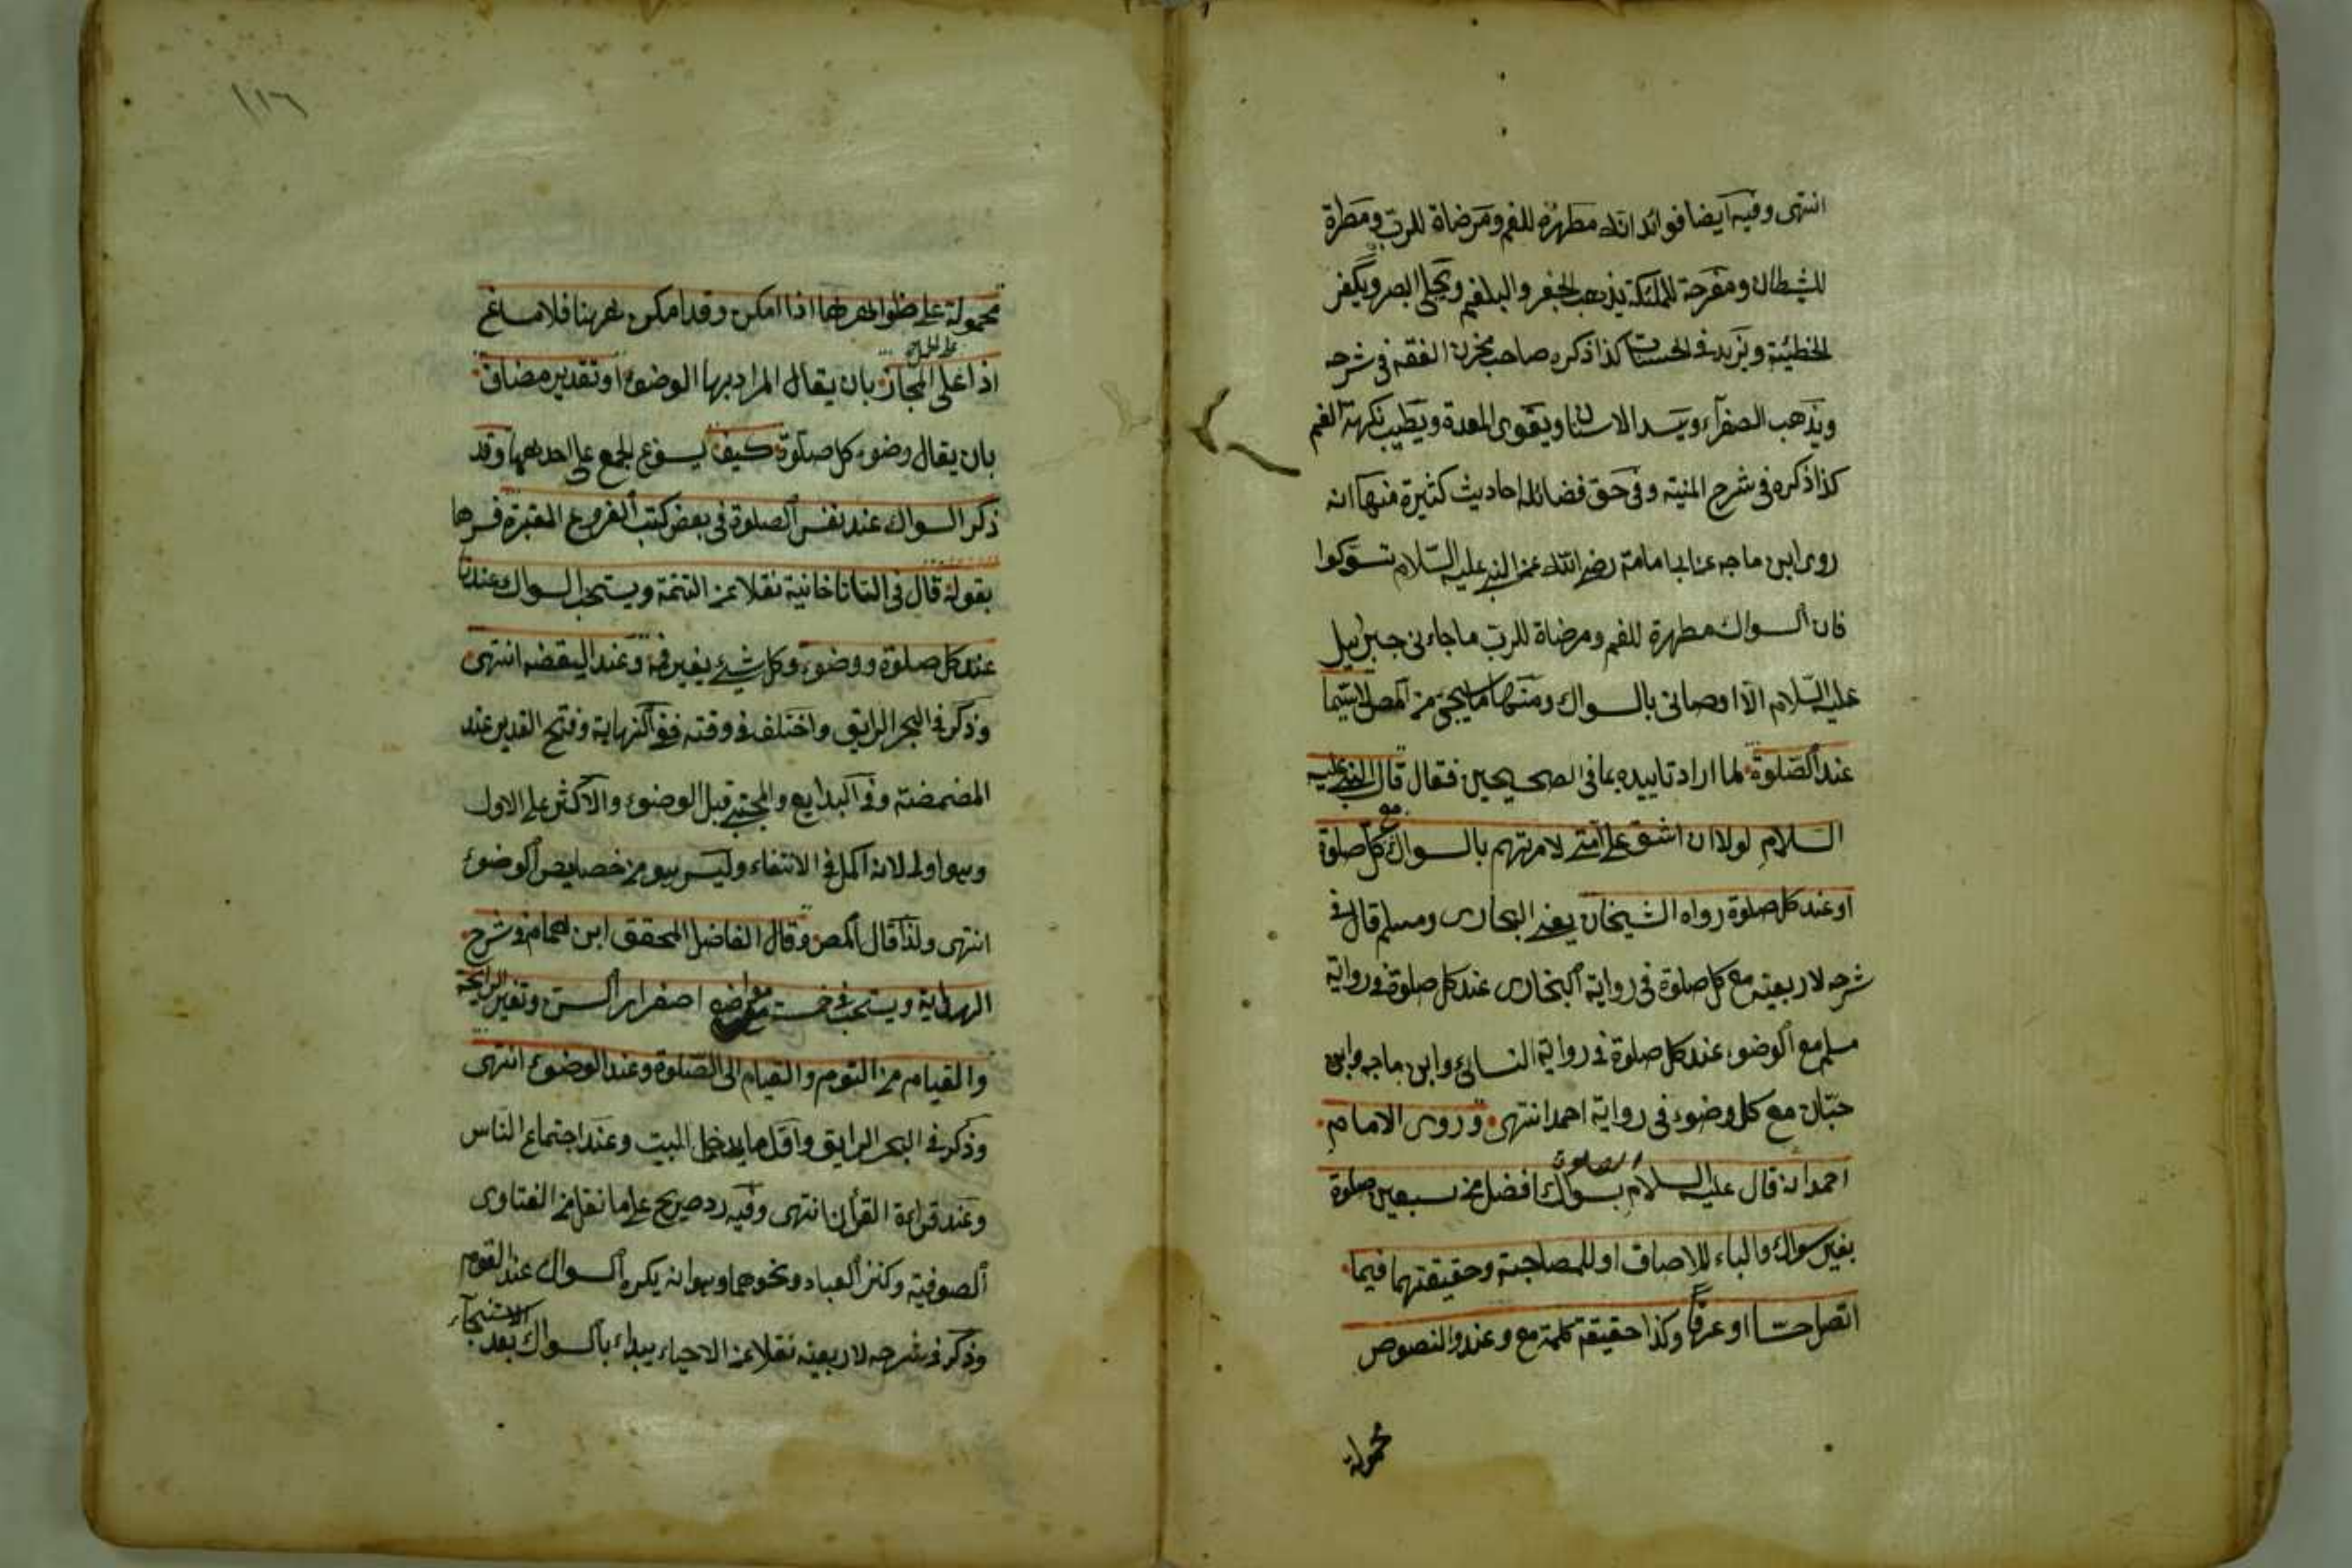 انتهى وفيه ايضا فوائد انه مطهرة للفم ومرضاة للرب ومطرة
للشيطان ومفرحة للملئكة يذهب الحفر والبلغم ويجلى البصر ويكفر
الخطيئة ويزيد فى الحسنات كذا ذكره صاحب مخزن الفقه فى شرحه
ويذهب الصفرآء ويسد الاسنان ويقوى المعدة ويطيب نكهة الفم
كذا ذكره فى شرح المنية وفى حق فضائله احاديث كثيرة منها انه
روى ابن ماجه عن ابى امامة رضى الله عن النبى عليه السلام تسوكوا
فان السواك مطهرة للفم ومرضاة للرب ما جاءنى جبرائيل
عليه السلام الا اوصانى بالسواك ومنها ما يجئ من المصر لاسيما
عند الصلوة لما اراد تاييده بما فى الصحيحين فقال قال النبى عليه
السلام لولا ان اشق على امتى لامرتهم بالسواك مع كل صلوة
او عند كل صلوة رواه الشيخان يعنى البخارى ومسلم قال فى
شرحه لاربعينه مع كل صلوة فى رواية البخارى عند كل صلوة فى رواية
مسلم مع الوضوء عند كل صلوة فى رواية النسائى وابن ماجه وابن
حبان مع كل وضوء فى رواية احمد انتهى وروى الامام
احمد انه قال عليه السلام الصلوة بسواك افضل من سبعين صلوة
بغير سواك والباء للالصاق او للمصاحبة وحقيقتهما فيما
اتصل حسا او عرفا وكذا حقيقة كلمة مع وعند والنصوص
محمولة
١١٦
محمولة على ظواهرها اذا امكن وقد امكن ههنا فلا مساغ
اذا على المجاز بان يقال المراد بها الوضوء او تقدير مضاف
بان يقال وضوء كل صلوة كيف يسوغ الجمع على احدهما وقد
ذكر السواك عند نفس الصلوة فى بعض كتب الفروع المعتبرة فسرها
بقوله قال فى التاتاخانية نقلا عن التتمة ويستحب السواك عندنا
عند كل صلوة ووضوء وكل شئ يغير فمه وعند اليقضه انتهى
وذكر فى البحر الرايق واختلف فى وقته ففى النهاية وفتح القدير عند
المضمضة وفى البدايع والمجتبى قبل الوضوء والاكثر على الاول
وهو اولى لانه اكمل فى الانقاء وليس هو من خصايص الوضوء
انتهى ولذا قال المصر وقال الفاضل المحقق ابن الهمام فى شرح
الهداية ويستحب فى خمسة مواضع اصفرار السن وتغير الرايحة
والقيام من النوم والقيام الى الصلوة وعند الوضوء انتهى
وذكر فى البحر الرايق واقل ما يدخل البيت وعند اجتماع الناس
وعند قراءة القرأن انتهى وفيه رد صريح على ما نقل من الفتاوى
الصوفية وكنز العباد ونحوهما وهو انه يكره السواك عند القوم
وذكر فى شرحه لاربعينه نقلا عن الاحياء يبداء بالسواك بعد الاستنجآء